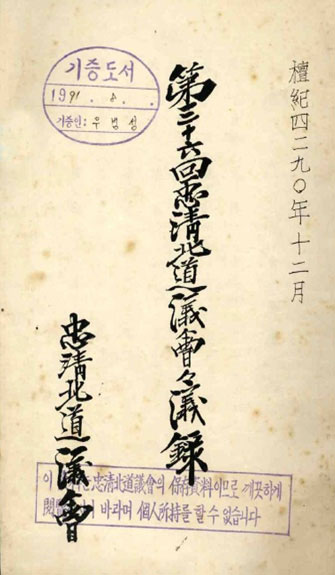 檀紀四二九〇年十二月
第二十六回忠清北道議會々議錄
忠清北道議會
기증도서
1991. 8.
기증인: 우범성
이 忠清北道議會의 保存資料이므로 깨끗하게
閱 바라며 個人所持를 할 수 없습니다